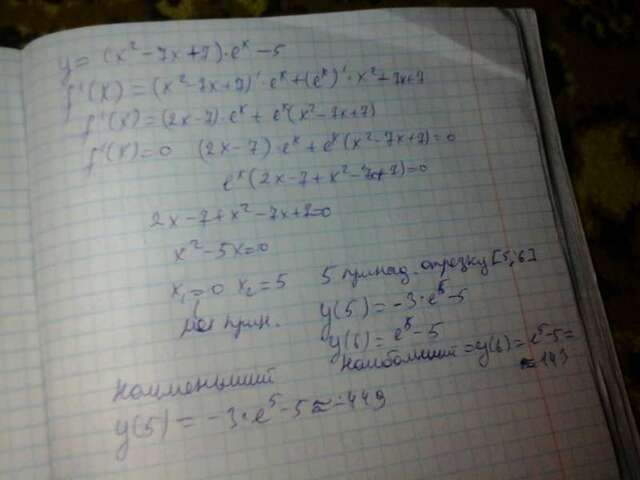 y = (x² - 7x + 7) · eˣ - 5
f'(x) = (x² - 7x + 7)' · eˣ + (eˣ)' · x² + 7x + 7
f'(x) = (2x - 7) · eˣ + eˣ(x² - 7x + 7)
f'(x) = 0 (2x - 7) · eˣ + eˣ(x² - 7x + 7) = 0
eˣ(2x - 7 + x² - 7x + 7) = 0
2x - 7 + x² - 7x + 7 = 0
x² - 5x = 0
x₁ = 0 x₂ = 5
прин.
5 принад. отрезку [5; 6]
y(5) = -3 · e⁵ - 5
y(6) = e⁵ - 5
наибольший = y(6) = e⁵ - 5 =
≈ 143
наименьший
y(5) = -3 · e⁵ - 5 ≈ -449